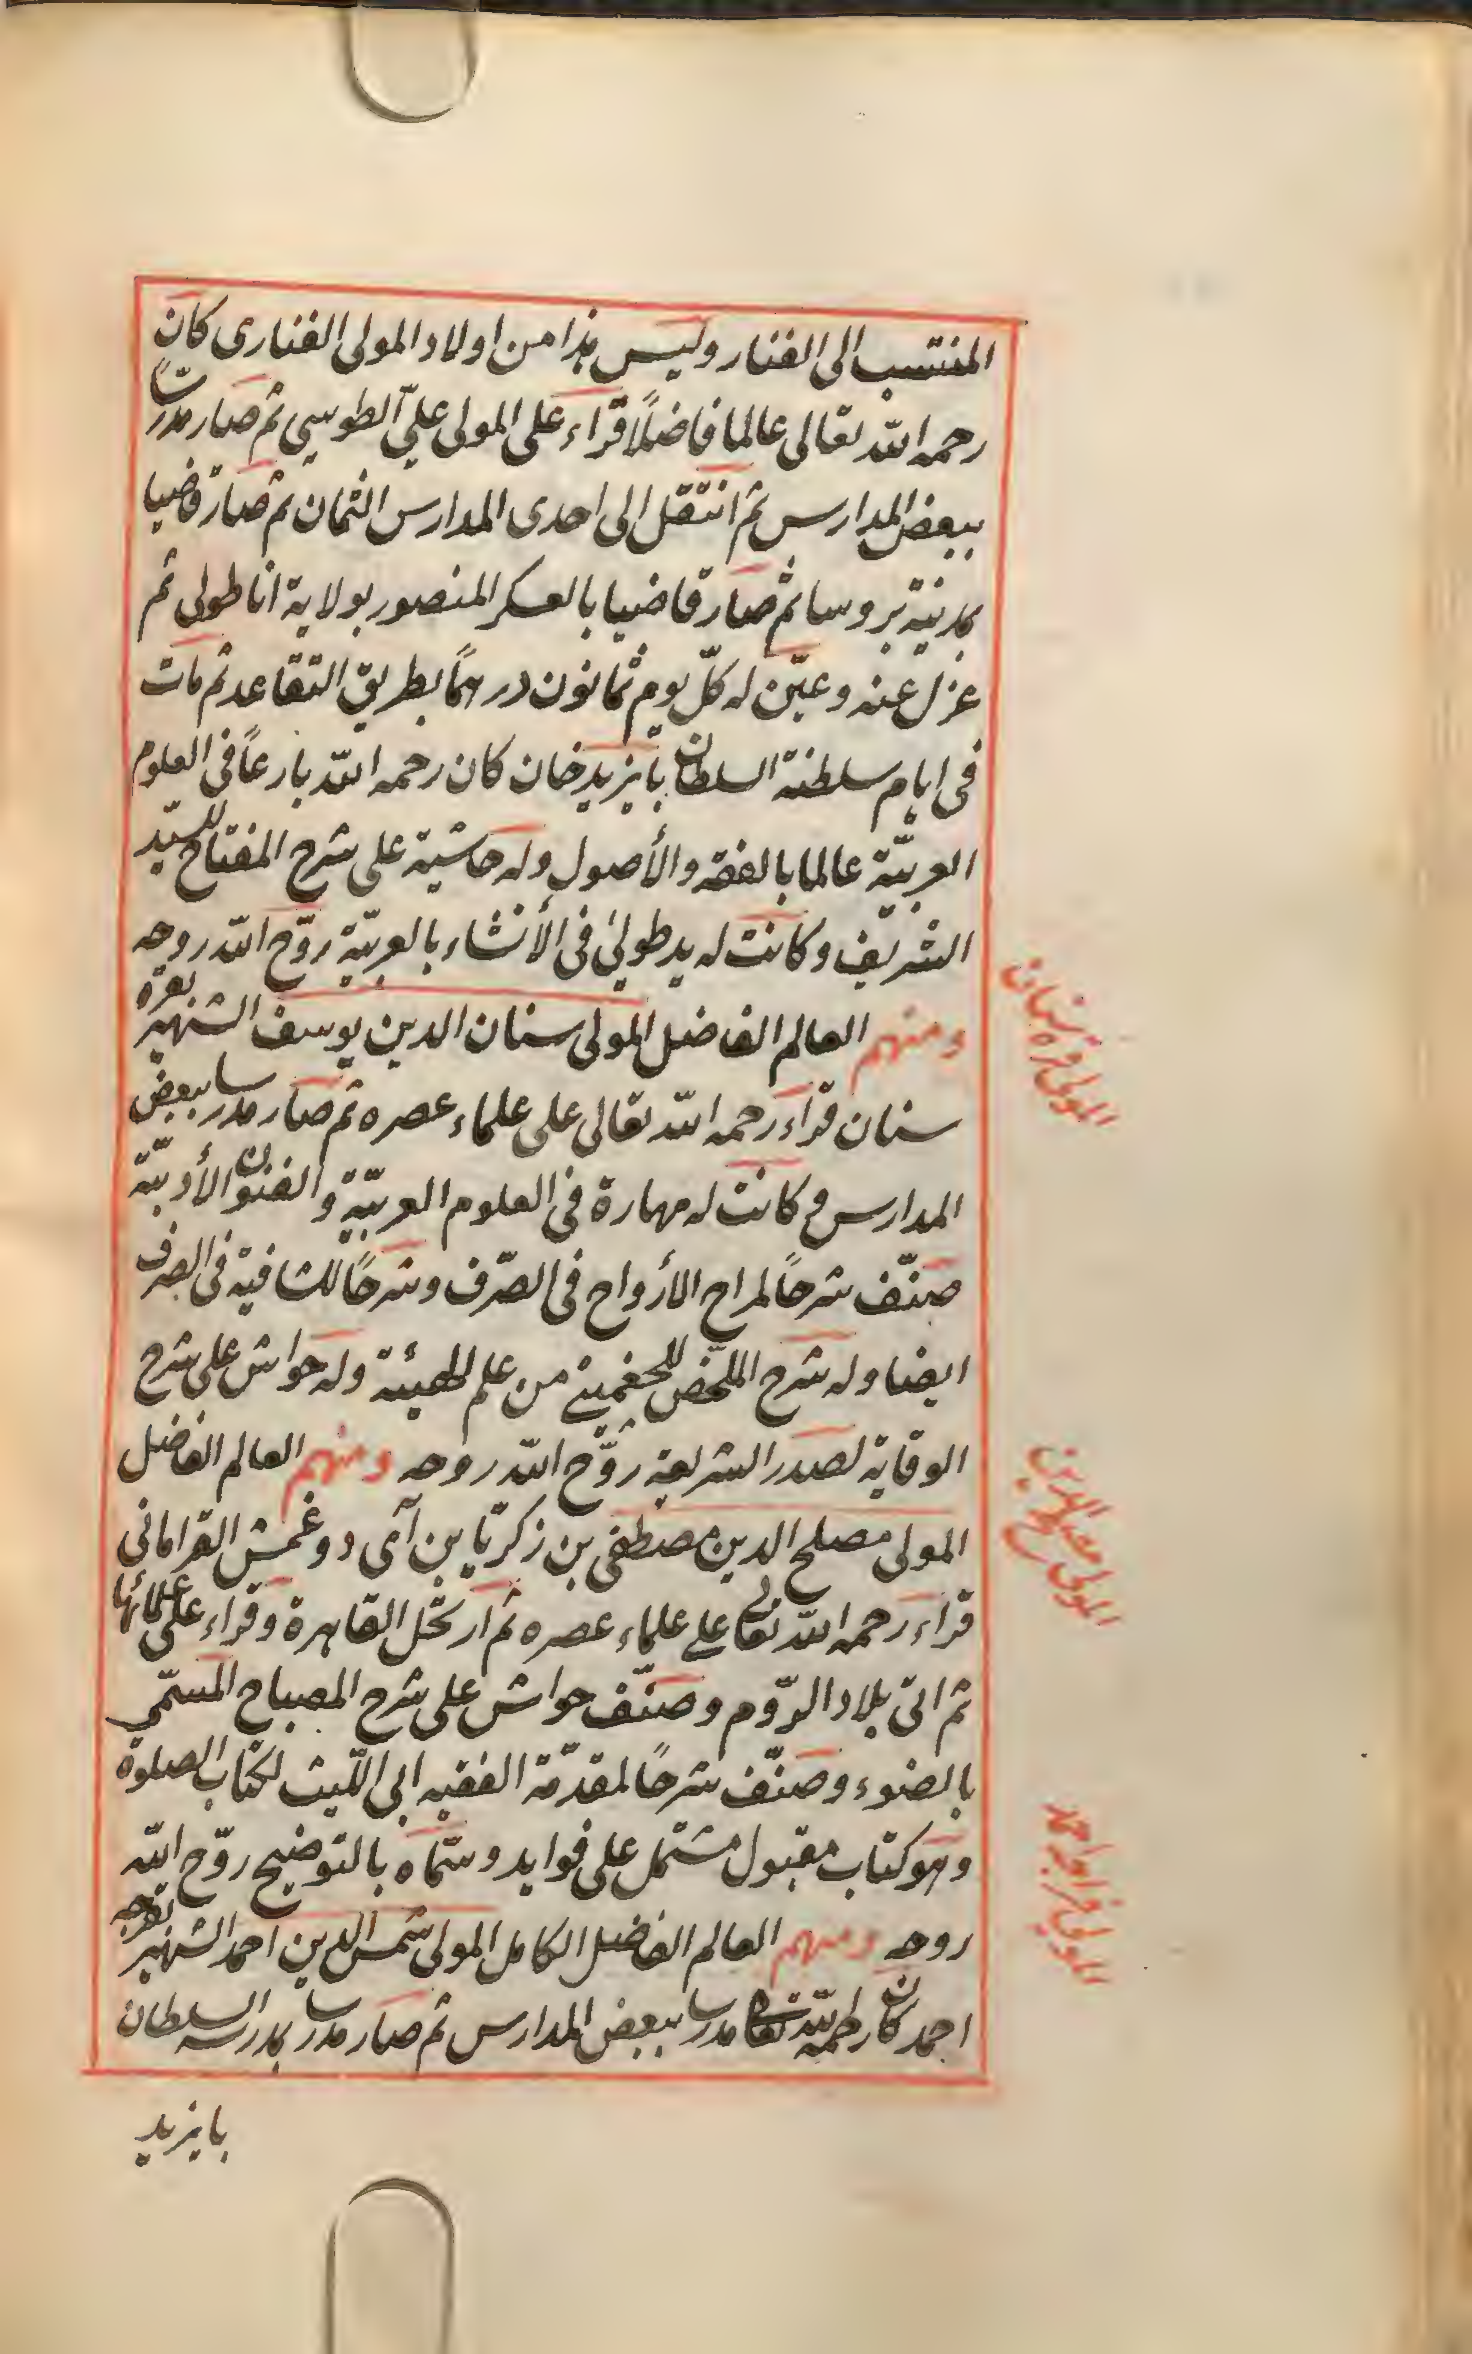 المنتسب الى الفنار وليس هذا من اولاد المولى الفنارى كان
رحمه الله تعالى عالما فاضلًا قراء على المولى علىّ الطوسي ثم صار مدرسًا
ببعض المدارس ثم انتقل الى احدى المدارس الثمان ثم صار قاضيا
بمدينة بروسا ثم صار قاضيا بالعسكر المنصور بولاية اناطولى ثم
عزل عنه وعيّن له كلّ يوم ثمانون درهمًا بطريق التقاعد ثم مات
فى ايام سلطنة السلطان بايزيد خان كان رحمه الله بارعًا فى العلوم
العربيّة عالما بالفقه والأصول وله حاشية على شرح المفتاح للسيّد
الشريف وكانت له يد طولىٰ فى الأنشاء بالعربيّة روّح الله روحه
ومنهم العالم الفاضل المولى سنان الدين يوسف الشهير بقره
سنان قراء رحمه الله تعالى على علماء عصره ثم صار مدرسا ببعض
المدارس وكانت له مهارة فى العلوم العربيّة والفنون الأدبيّة
صنّف شرحًا لمراح الأرواح فى الصّرف وشرحًا للشافية فى الصرف
ايضا وله شرح الملخّص للجغمينى من علم الهيئة وله حواش على شرح
الوقاية لصدر الشريعة روّح الله روحه ومنهم العالم الفاضل
المولى مصلح الدين مصطفى بن زكريّا بن آى دوغمش القرامانى
قراء رحمه الله تعالى على علماء عصره ثم ارتحل القاهرة وقراء على علمائها
ثم اتى بلاد الرّوم وصنّف حواش على شرح المصباح المسمّى
بالضوء وصنّف شرحًا لمقدّمة الفقيه ابى اللّيث لكتاب الصلوة
وهو كتاب مقبول مشتمل على فوايد وسمّاه بالتوضيح روّح الله
روحه ومنهم العالم الفاضل الكامل المولى شمس الدين احمد الشهير بقرجه
احمد كان رحمه الله تعالى مدرسا ببعض المدارس ثم صار مدرسا بمدرسه السلطان
بايزيد
المولى قره سنان
المولى مصلح الدين
المولى قراجه احمد